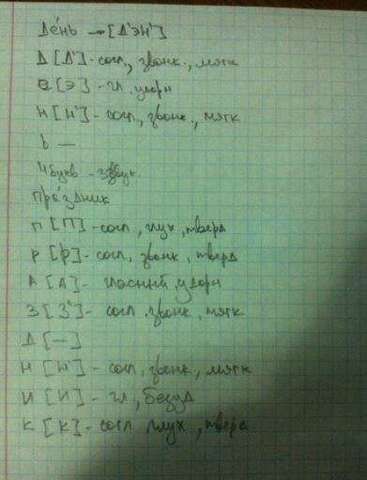 де́нь → [д'эн']
д [д'] - согл, звонк., мягк
е [э] - гл. ударн
н [н'] - согл, звонк., мягк
ь —
4 букв - 3 звук.
пра́здник
п [п] - согл, глух, тверд
р [р] - согл, звонк, тверд
а [а] - гласный, ударн
з [з'] - согл. звонк, мягк
д [—]
н [н'] - согл, звонк, мягк
и [и] - гл, безуд
к [к] - согл глух, тверд